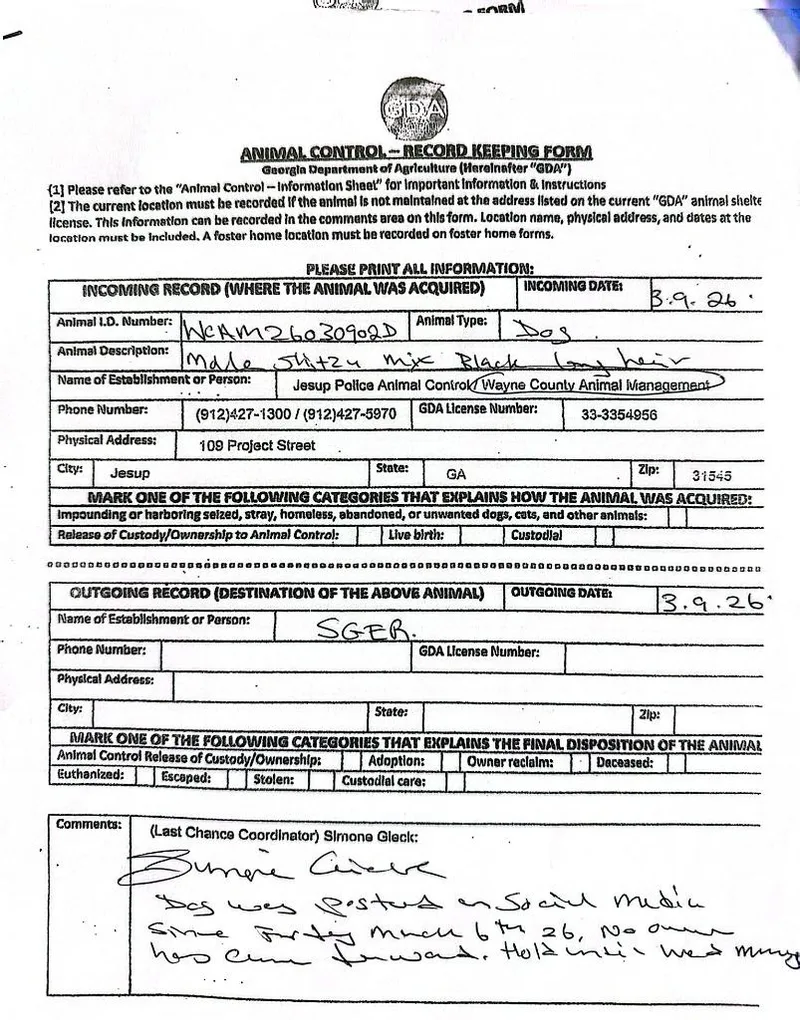 FORM
GDA
ANIMAL CONTROL – RECORD KEEPING FORM
Georgia Department of Agriculture (Hereinafter "GDA")
[1] Please refer to the "Animal Control – Information Sheet" for Important Information & Instructions
[2] The current location must be recorded if the animal is not maintained at the address listed on the current "GDA" animal shelte
license. This information can be recorded in the comments area on this form. Location name, physical address, and dates at the
location must be included. A foster home location must be recorded on foster home forms.
PLEASE PRINT ALL INFORMATION:
INCOMING RECORD (WHERE THE ANIMAL WAS ACQUIRED) INCOMING DATE: 3.9.26
Animal I.D. Number: WCAM26030902D Animal Type: Dog
Animal Description: Male Shitzu Mix Black long heir
Name of Establishment or Person: Jesup Police Animal Control/ Wayne County Animal Management
Phone Number: (912)427-1300 / (912)427-5970 GDA License Number: 33-3354956
Physical Address: 109 Project Street
City: Jesup State: GA Zip: 31545
MARK ONE OF THE FOLLOWING CATEGORIES THAT EXPLAINS HOW THE ANIMAL WAS ACQUIRED:
Impounding or harboring seized, stray, homeless, abandoned, or unwanted dogs, cats, and other animals:
Release of Custody/Ownership to Animal Control: Live birth: Custodial
OUTGOING RECORD (DESTINATION OF THE ABOVE ANIMAL) OUTGOING DATE: 3.9.26
Name of Establishment or Person: SGER.
Phone Number: GDA License Number:
Physical Address:
City: State: Zip:
MARK ONE OF THE FOLLOWING CATEGORIES THAT EXPLAINS THE FINAL DISPOSITION OF THE ANIMAL
Animal Control Release of Custody/Ownership: Adoption: Owner reclaim: Deceased:
Euthanized: Escaped: Stolen: Custodial care:
Comments: (Last Chance Coordinator) Simone Gieck:
Dog was posted on Social Media
Since March 6th 26, No owner
has come forward. Hold until